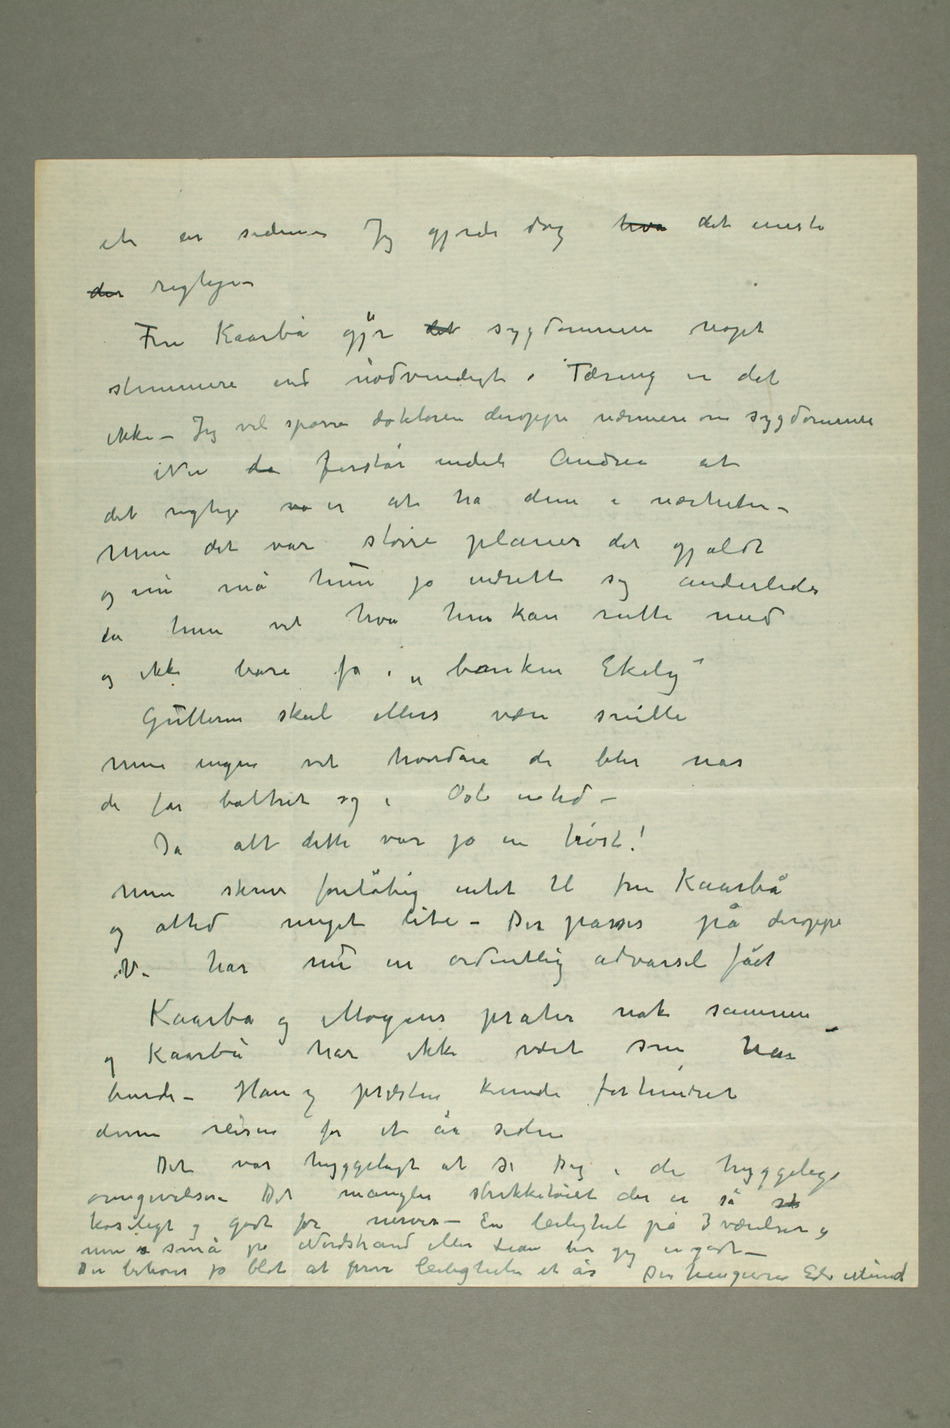 et år siden – Jeg gjorde dog hva det eneste
den rigtige –
Fru Kaarbø gjør det sygdommen noget
slemmere end nødvendigt. Tæring er det
ikke – Jeg vil spørre doktoren deroppe nærmere om sygdommen
Nu da forstår endeli Andrea at
det rigtige va er at ha dem i nærheten –
Men det var større planer det gjaldt
og nu må hun jo indrette sig anderledes
da hun vet hva hun kan rutte med
og ikke bare få i „banken Ekely"
Gutterne skal ellers være snille
men ingen vet hvordan de blir når
de får boltret sig i Oslo en tid –
Ja alt dette var jo en trøst!
Men skriv foreløbig intet til fru Kaarbø
og altid meget lite – Der passes på deroppe
Vi har nu en ordentlig advarsel fået
Kaarbø og Mogens prater nok sammen –
og Kaarbø har ikke været som han
burde – Han og præsten kunde forhindret
denne reisen for et år siden
Det var hyggeligt at se Dig i de hyggelige
omgivelser – Det mangler strikketøiet der er så st
koseligt og godt for nerver – En leilighet på 3 værelser og
men s små på Nordstrand eller Lian tror jeg er godt –
Du behøver jo blot at prøve leiligheten et år Din hengivne Edv Munch